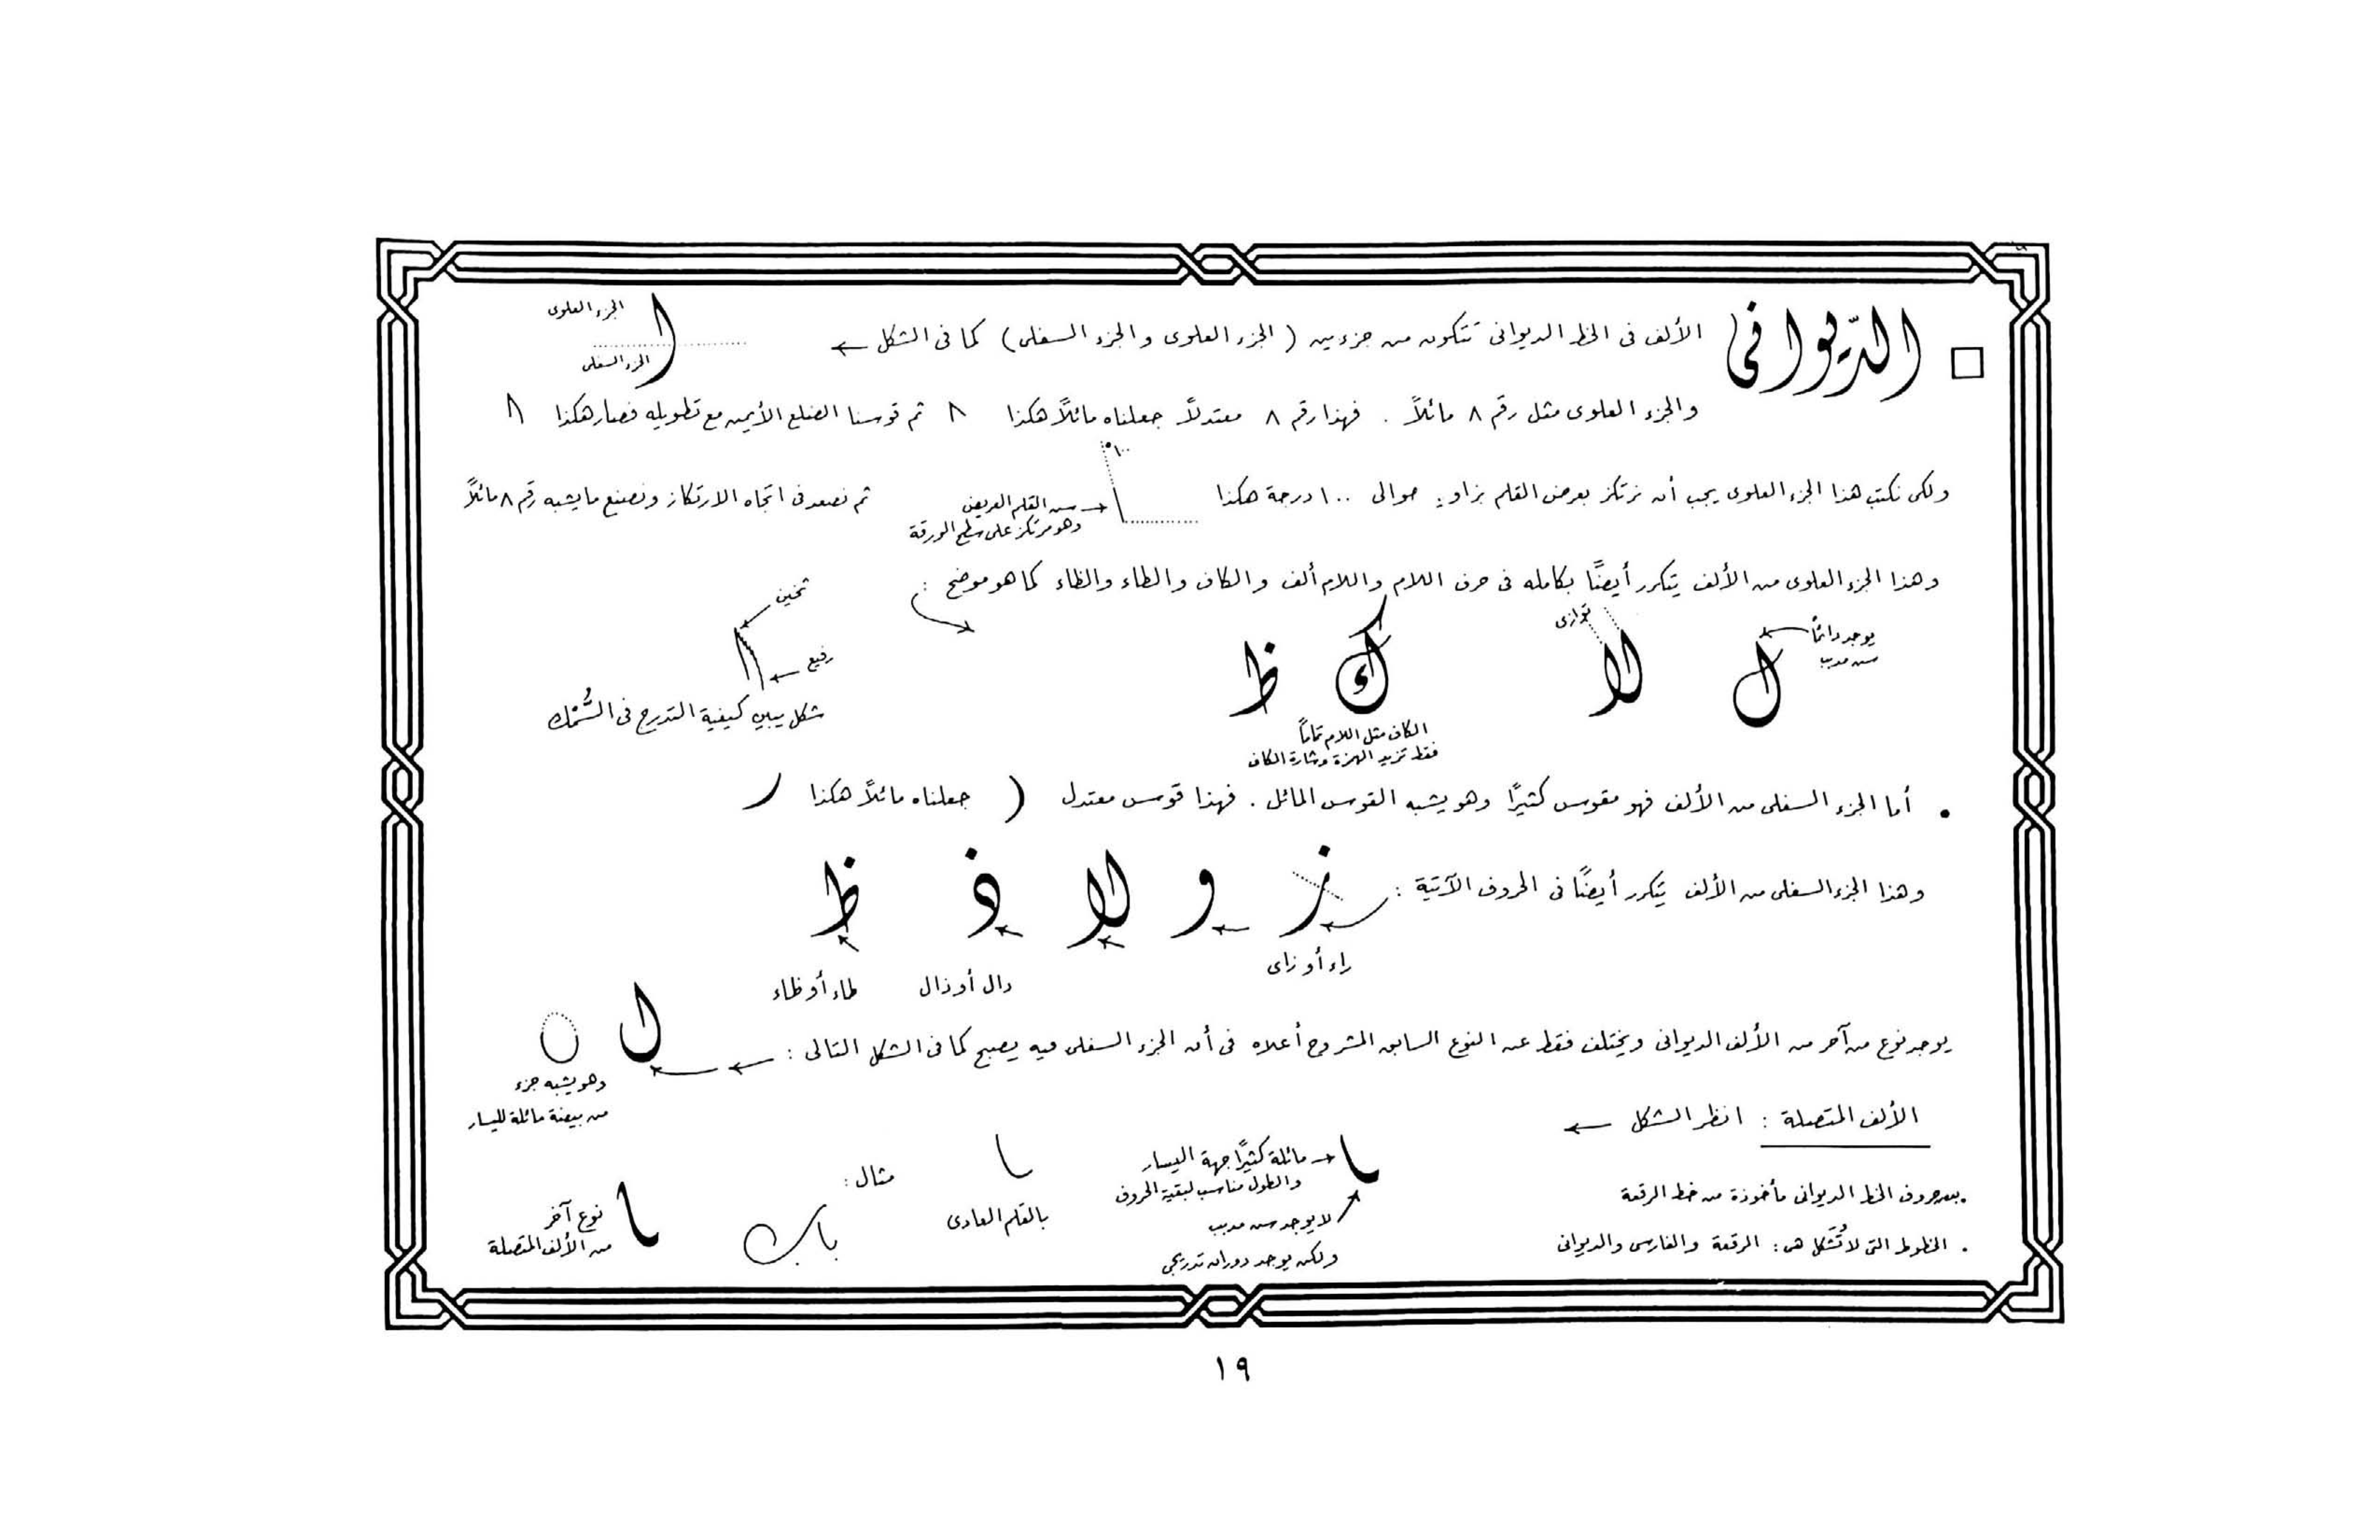 □ الديوانى
الألف فى الخط الديوانى تتكون من جزءين ( الجزء العلوى والجزء السفلى ) كما فى الشكل ←
الجزء العلوى
الجزء السفلى
والجزء العلوى مثل رقم ٨ مائلاً . فهذا رقم ٨ معتدلاً جعلناه مائلاً هكذا ٨ ثم قوسنا الضلع الأيمن مع تطويله فصار هكذا ٨
ولكى نكتب هذا الجزء العلوى يجب أن نرتكز بعرض القلم بزاوية حوالى ١٠٠ درجة هكذا
١٠٠°
سن القلم العريض
وهو مرتكز على سطح الورقة
ثم نصعد فى اتجاه الارتكاز ونصنع ما يشبه رقم ٨ مائلاً
وهذا الجزء العلوى من الألف يتكرر أيضًا بكامله فى حرف اللام واللام ألف والكاف والطاء والظاء كما هو موضح :
يوجد دائمًا
سن مدبب
ل
توازى
لا
ك
ظ
الكاف مثل اللام تمامًا
فقط تزيد الهمزة وشارة الكاف
ثخين
رفيع
شكل يبين كيفية التدرج فى السُّمْك
• أما الجزء السفلى من الألف فهو مقوس كثيرًا وهو يشبه القوس المائل . فهذا قوس معتدل ) جعلناه مائلاً هكذا
وهذا الجزء السفلى من الألف يتكرر أيضًا فى الحروف الآتية :
ز و لا ذ ظ
راء أو زاى
دال أو ذال
طاء أو ظاء
يوجد نوع من آخر من الألف الديوانى ويختلف فقط عن النوع السابق المشروح أعلاه فى أن الجزء السفلى فيه يصبح كما فى الشكل التالى :
وهو يشبه جزء
من بيضة مائلة لليسار
الألف المتصلة : انظر الشكل ←
مائلة كثيرًا جهة اليسار
والطول مناسب لبقية الحروف
لا يوجد سن مدبب
ولكن يوجد دوران تدريجى
بالقلم العادى
مثال :
باب
نوع آخر
من الألف المتصلة
• بعض حروف الخط الديوانى مأخوذة من خط الرقعة
• الخطوط التى لا تُشَكل هى : الرقعة والفارسى والديوانى
١٩